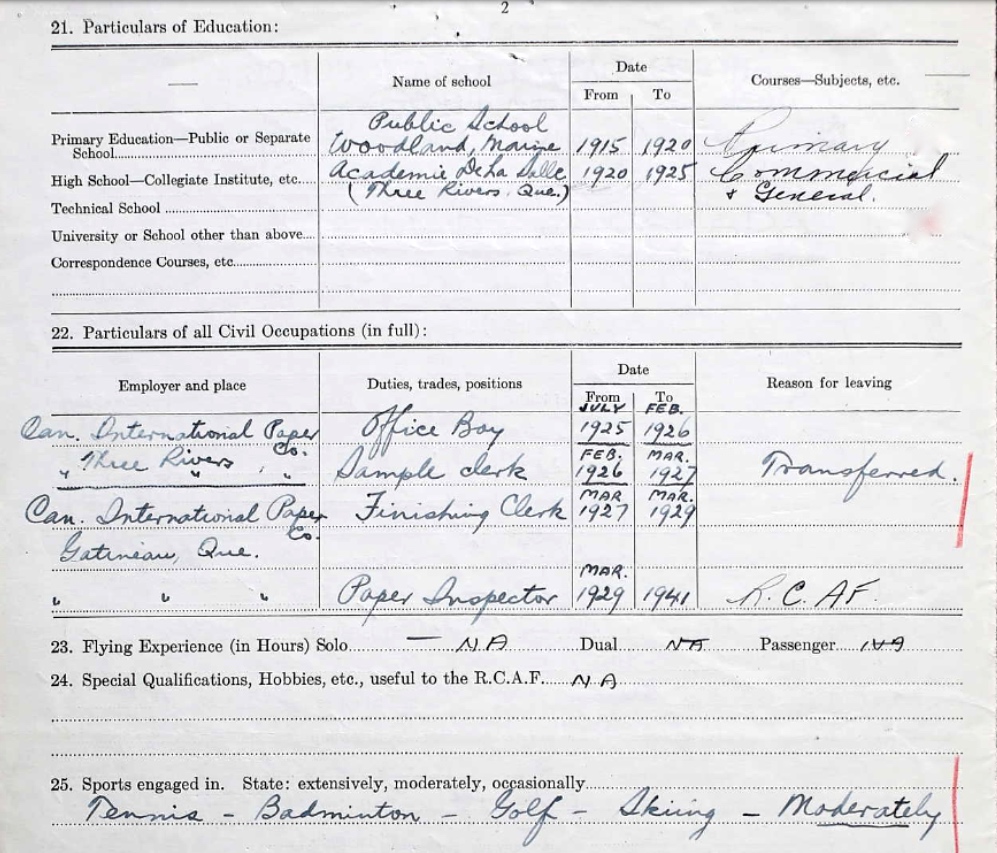 2
21. Particulars of Education:
Name of school
Date
From To
Courses—Subjects, etc.
Public School
Primary Education—Public or Separate
School Woodland, Maine 1915 1920 Primary
High School—Collegiate Institute, etc. Academie De La Salle 1920 1925 Commercial
(Three Rivers, Que.) & General.
Technical School
University or School other than above
Correspondence Courses, etc.
22. Particulars of all Civil Occupations (in full):
Employer and place
Duties, trades, positions
Date
From To
Reason for leaving
JULY FEB.
Can. International Paper Office Boy 1925 1926
Co. FEB. MAR.
" Three Rivers " " Sample clerk 1926 1927 Transferred.
MAR MAR.
Can. International Paper Finishing Clerk 1927 1929
Co.
Gatineau, Que.
MAR.
" " " Paper Inspector 1929 1941 R.C.AF.
23. Flying Experience (in Hours) Solo — NA Dual NA Passenger NA
24. Special Qualifications, Hobbies, etc., useful to the R.C.A.F. NA
25. Sports engaged in. State: extensively, moderately, occasionally
Tennis - Badminton - Golf - Skiing - Moderately